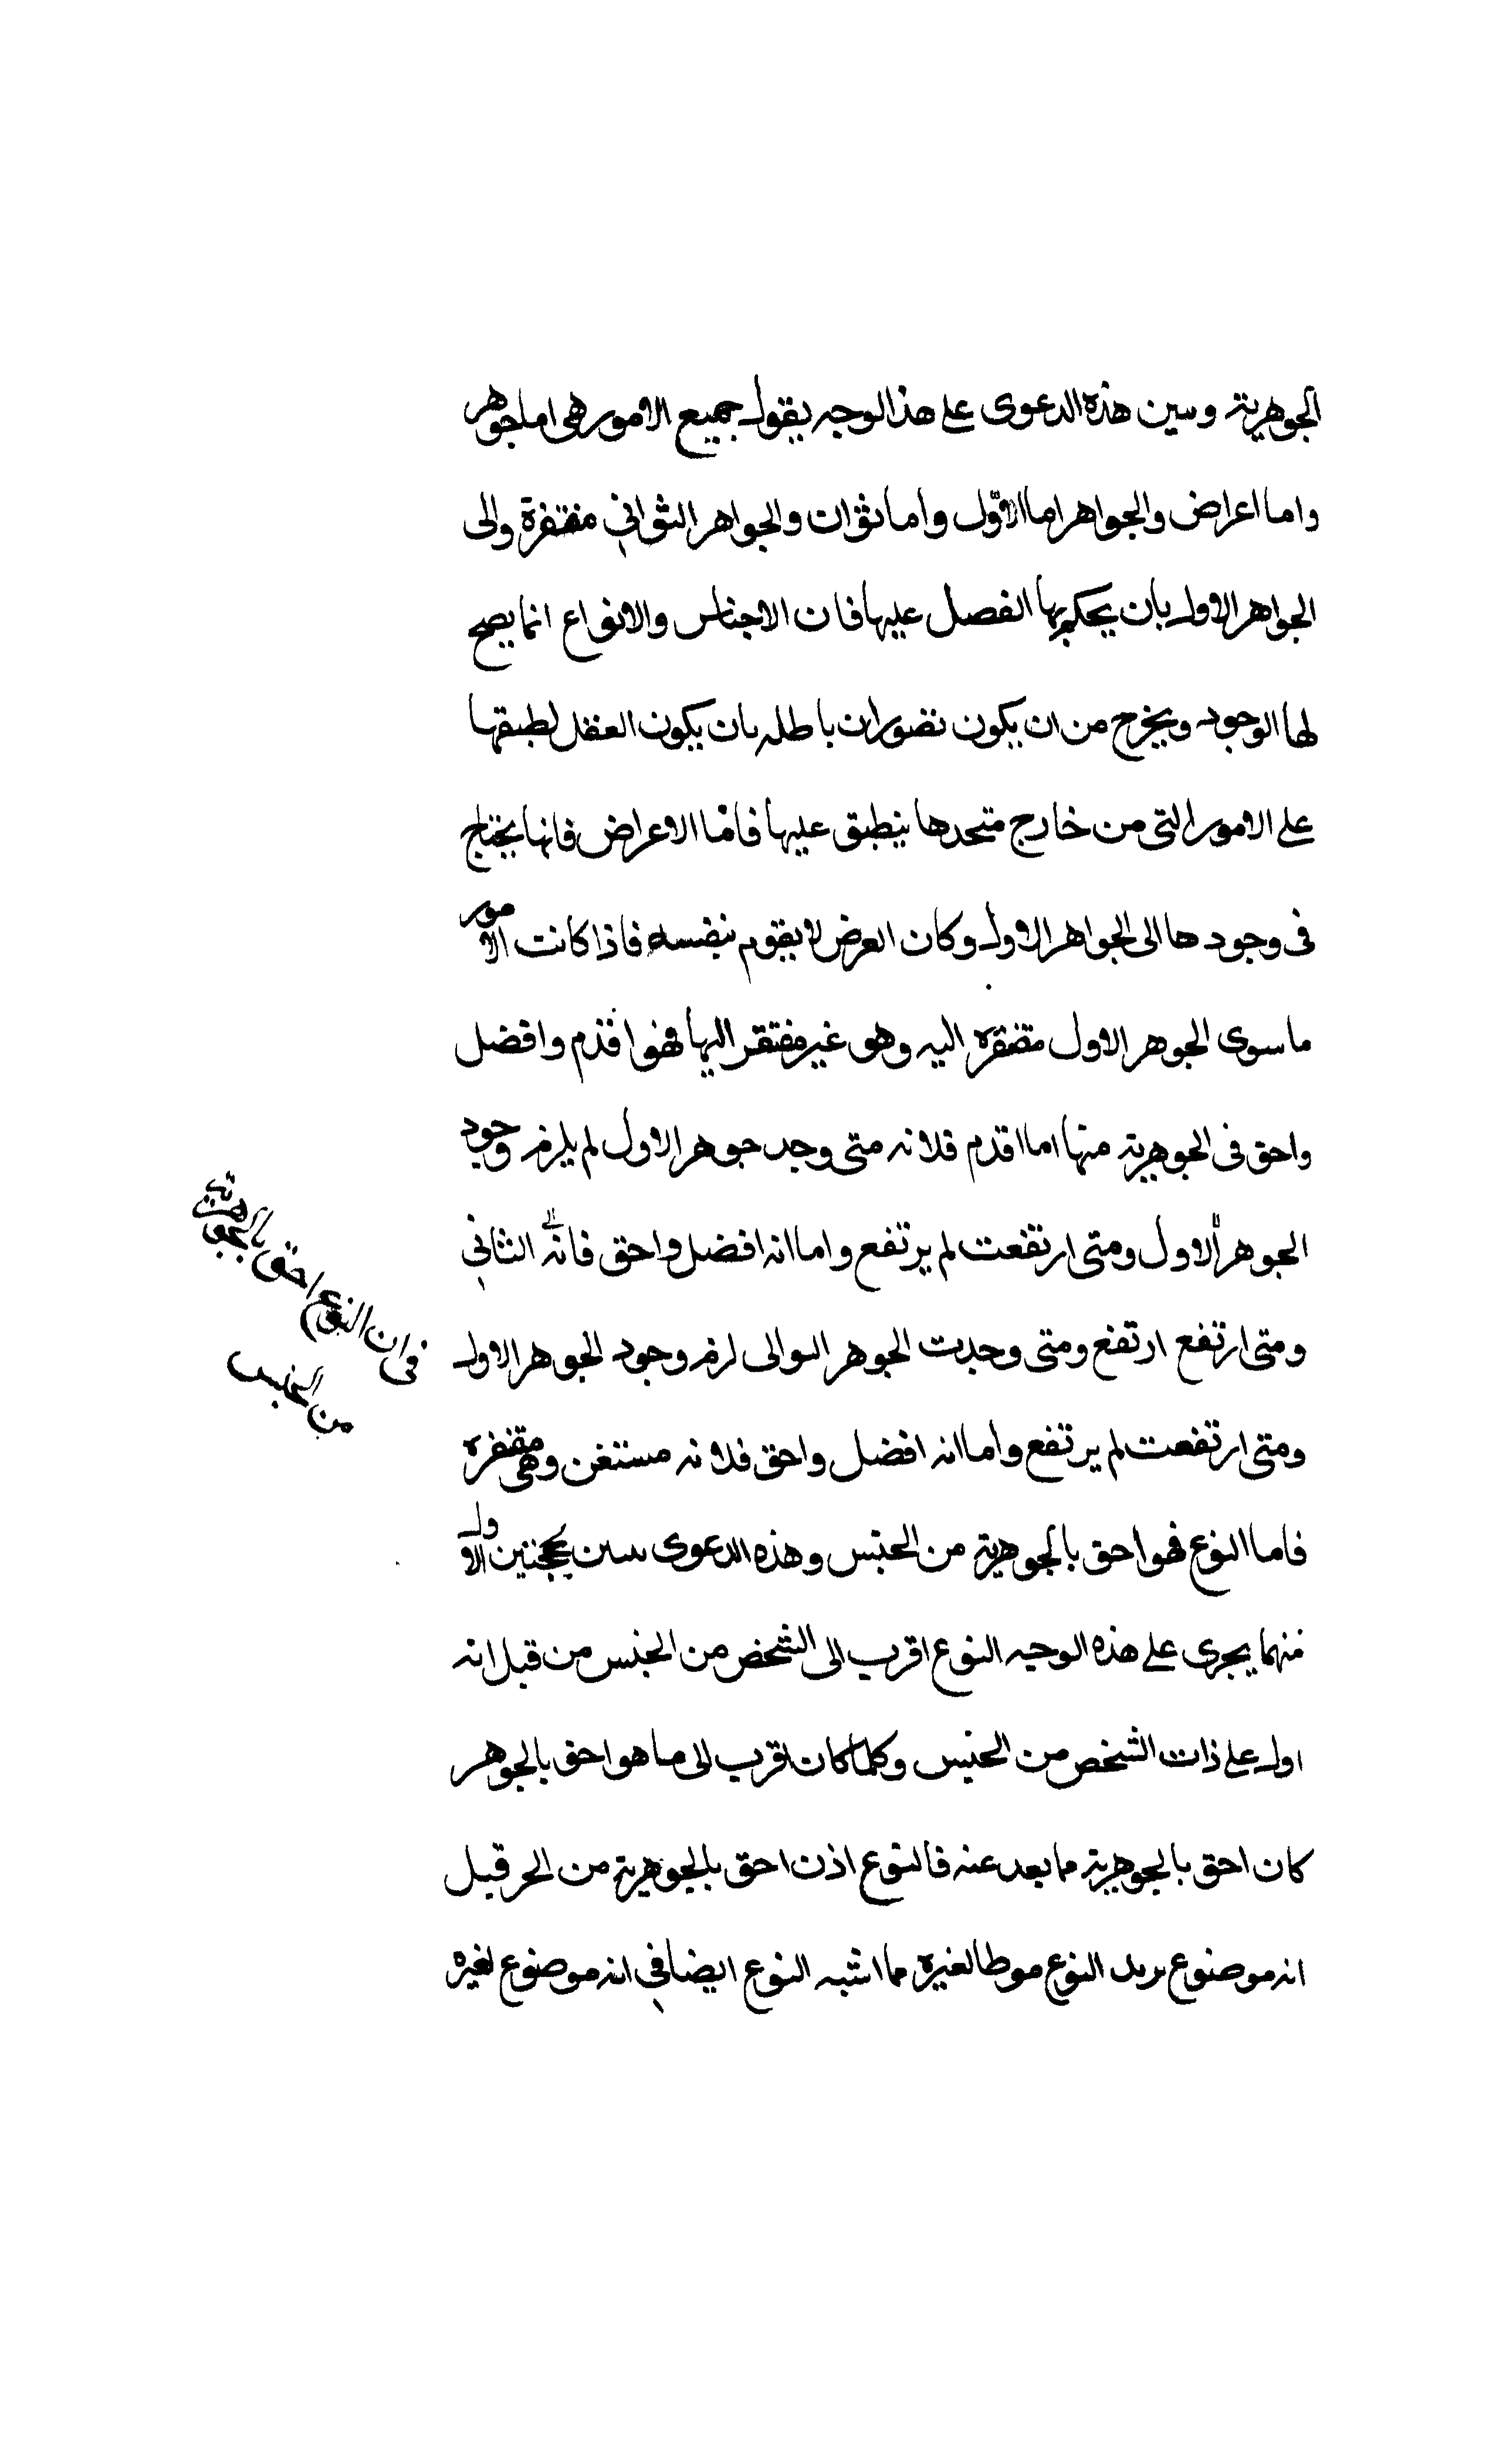 الجوهرية وسين هذه الدعوى على هذا الوجه يقول جميع الامور هى اما جوهر
واما اعراض والجواهر اما الاوّل واما ثوان والجواهر الثوانى مفتقرة والى
الجواهر الاول بان يحكم بها الفصل عليها فان الاجناس والانواع انما يصح
لها الوجود ويخرج من ان يكون تصوران باطله بان يكون العقل لطبقها
على الامور التى من خارج متحدها ينطبق عليها فامّا الاعراض فانها يحتاج
فى وجودها الى الجواهر الاول وكان العرض لا يقوم بنفسه فاذا كانت الامور
ما سوى الجوهر الاول مفتقره اليه وهو غير مفتقر اليها فهو اقدم وافضل
واحق فى الجوهرية منها اما اقدم فلانه متى وجد جوهر الاول لم يلزم وجود
الجوهر الاول ومتى ارتفعت لم يرتفع واما انه افضل واحق فانه الثانى
ومتى ارتفع ارتفع ومتى وحدت الجوهر الىوالى لزم وجود الجوهر الاول
ومتى ارتفعت لم يرتفع واما انه افضل واحق فلانه مستغن وهى مفتقره
فاما النوع فهو احق بالجوهرية من الجنس وهذه الدعوى سىىن بحجتين الاول
منهما يجرى على هذه الوجيه النوع اقرب الى الشخص من الجنس من قبل انه
اول على ذات الشخص من الجنس وكلما كان اقرب الى ما هو احق بالجوهر
كان احق بالجوهرية مما بعد عنه فالنوع اذن احق بالجوهرية من الحر قبل
انه موضوع يريد النوع موطا لغيره مما اشبه النوع ايضا فى انه موضوع لغيره
فى ان النوع احق بالجوهرية
من الجنس